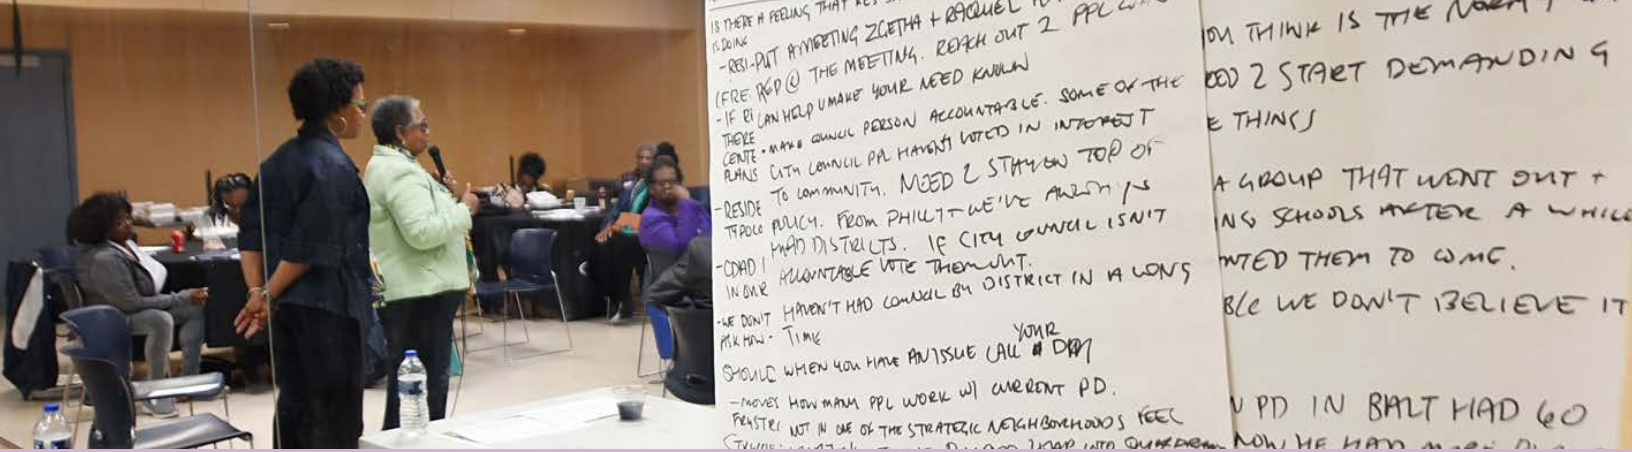 IS THERE A FEELING THAT
IS DOING
-RBJ-PUT A MEETING 2GETHA + RAQUEL
REP @ THE MEETING. REACH OUT 2 PPL
-IF CAN HELP U MAKE YOUR NEED KNOWN
THERE
CENTE • MAKE COUNCIL PERSON ACCOUNTABLE. SOME OF THE
PLANS CITY COUNCIL PPL HAVEN'T VOTED IN INTEREST
TO COMMUNITY. NEED 2 STAY ON TOP OF
-RESIDE POLICY. FROM PHILLY - WE'VE ALWAYS
HAD DISTRICTS. IF CITY COUNCIL ISN'T
-CDAD ACCOUNTABLE VOTE THEM OUT.
IN OUR
-WE DON'T HAVEN'T HAD COUNCIL BY DISTRICT IN A LONG
ASK HOW - TIME
YOUR
SHOULD WHEN YOU HAVE AN ISSUE CALL DM
-MOVES HOW MANY PPL WORK W/ CURRENT PD.
FRUSTR NOT IN ONE OF THE STRATEGIC NEIGHBORHOODS FEEL
YOU THINK IS THE NORM
2 START DEMANDING
THINGS
A GROUP THAT WENT OUT +
ING SCHOOLS AFTER A WHILE
THEM TO COME.
B/C WE DON'T BELIEVE IT
PD IN BALT HAD 60
NOW HE HAD MORE